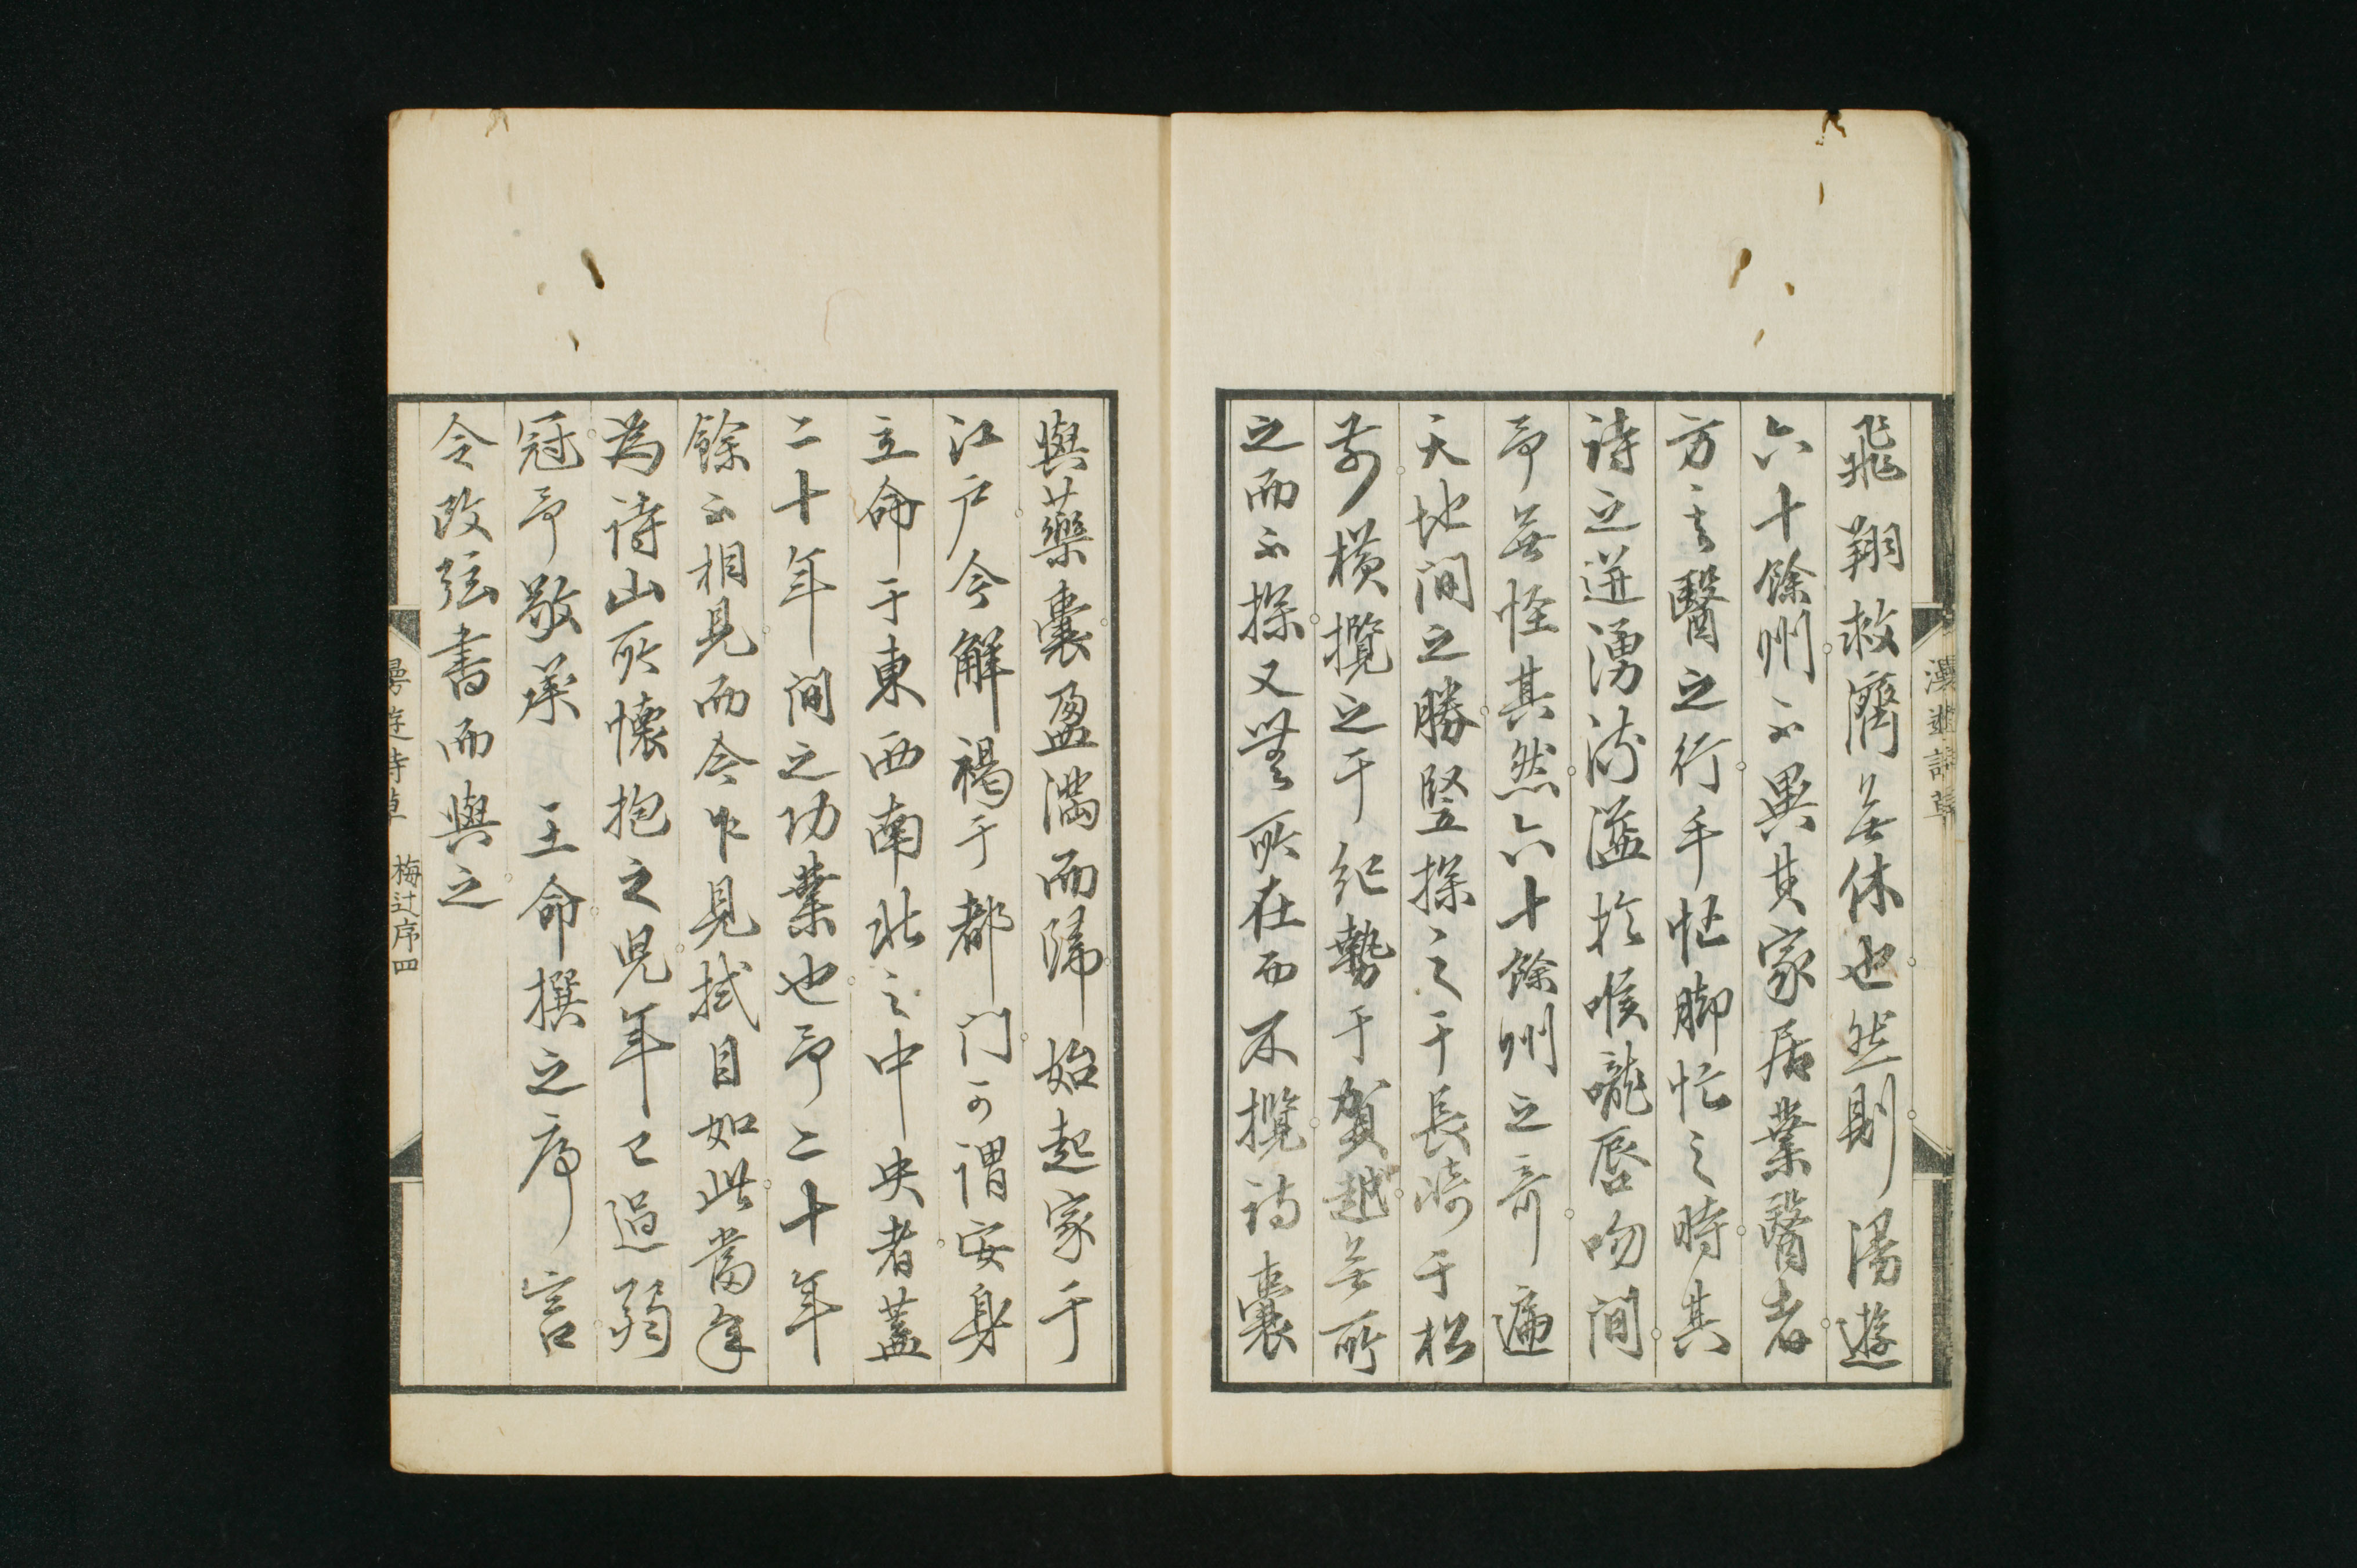 飛翔救濟無休也然則湯遊
六十餘州不異其家居業醫者
方言醫之行手怔脚忙之時其
詩之迸湧涛溢於喉嚨唇吻間
予無怪其然六十餘州之奇遍
天地間之勝竪探之于長崎于松
前横攬之于紀勢于賀越無所
之而不探又無所在而不攬詩囊
漫遊詩草
與藥囊盈滿而歸始起家于
江戸今解褐于都門可謂安身
立命于東西南北之中央者蓋
二十年間之功業也予二十年
餘不相見而今乍見拭目如此當年
為詩山所懷抱之児年已過弱
冠予敬承 王命撰之序 言
令改弦書而與之
漫遊詩草 梅辻序四